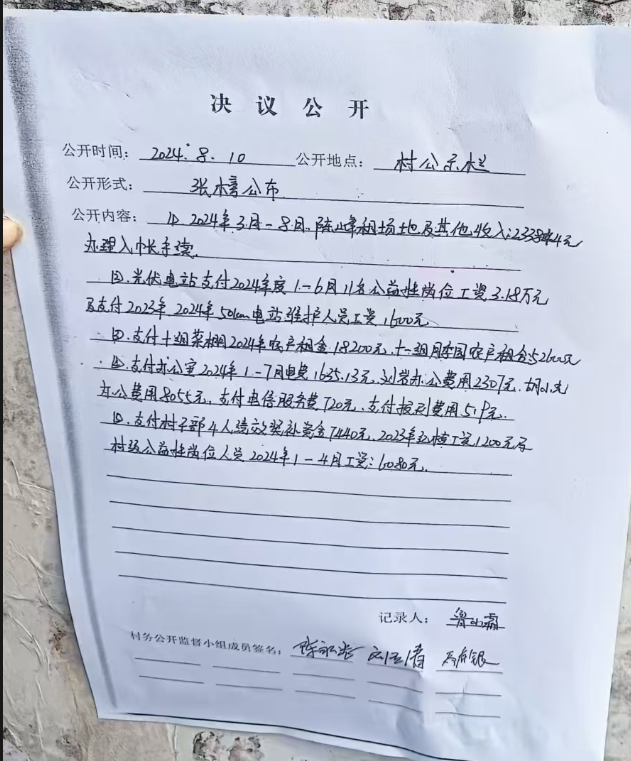 决议公开
公开时间: 2024.8.10 公开地点: 村公示栏
公开形式: 张榜公布
公开内容: ①.2024年3月-8月,陈峰租场地及其他收入:元
办理入帐手续.
②.光伏电站支付2024年度1-6月11名公益性岗位工资3.18万元
及支付2023年2024年50km电站维护人员工资1600元.
③.支付十组菜棚2024年农户租金18200元,十一组月季园农户租金
④.支付办公室2024年1-7月电费1635.13元,办公费用2307元.
办公费用8055元,支付电信服务费720元.支付报刊费用519元.
⑤.支付村干部4人绩效奖补资金7440元,2023年工资1200元及
村级公益性岗位人员2024年1-4月工资:6080元.
记录人:
村务公开监督小组成员签名: